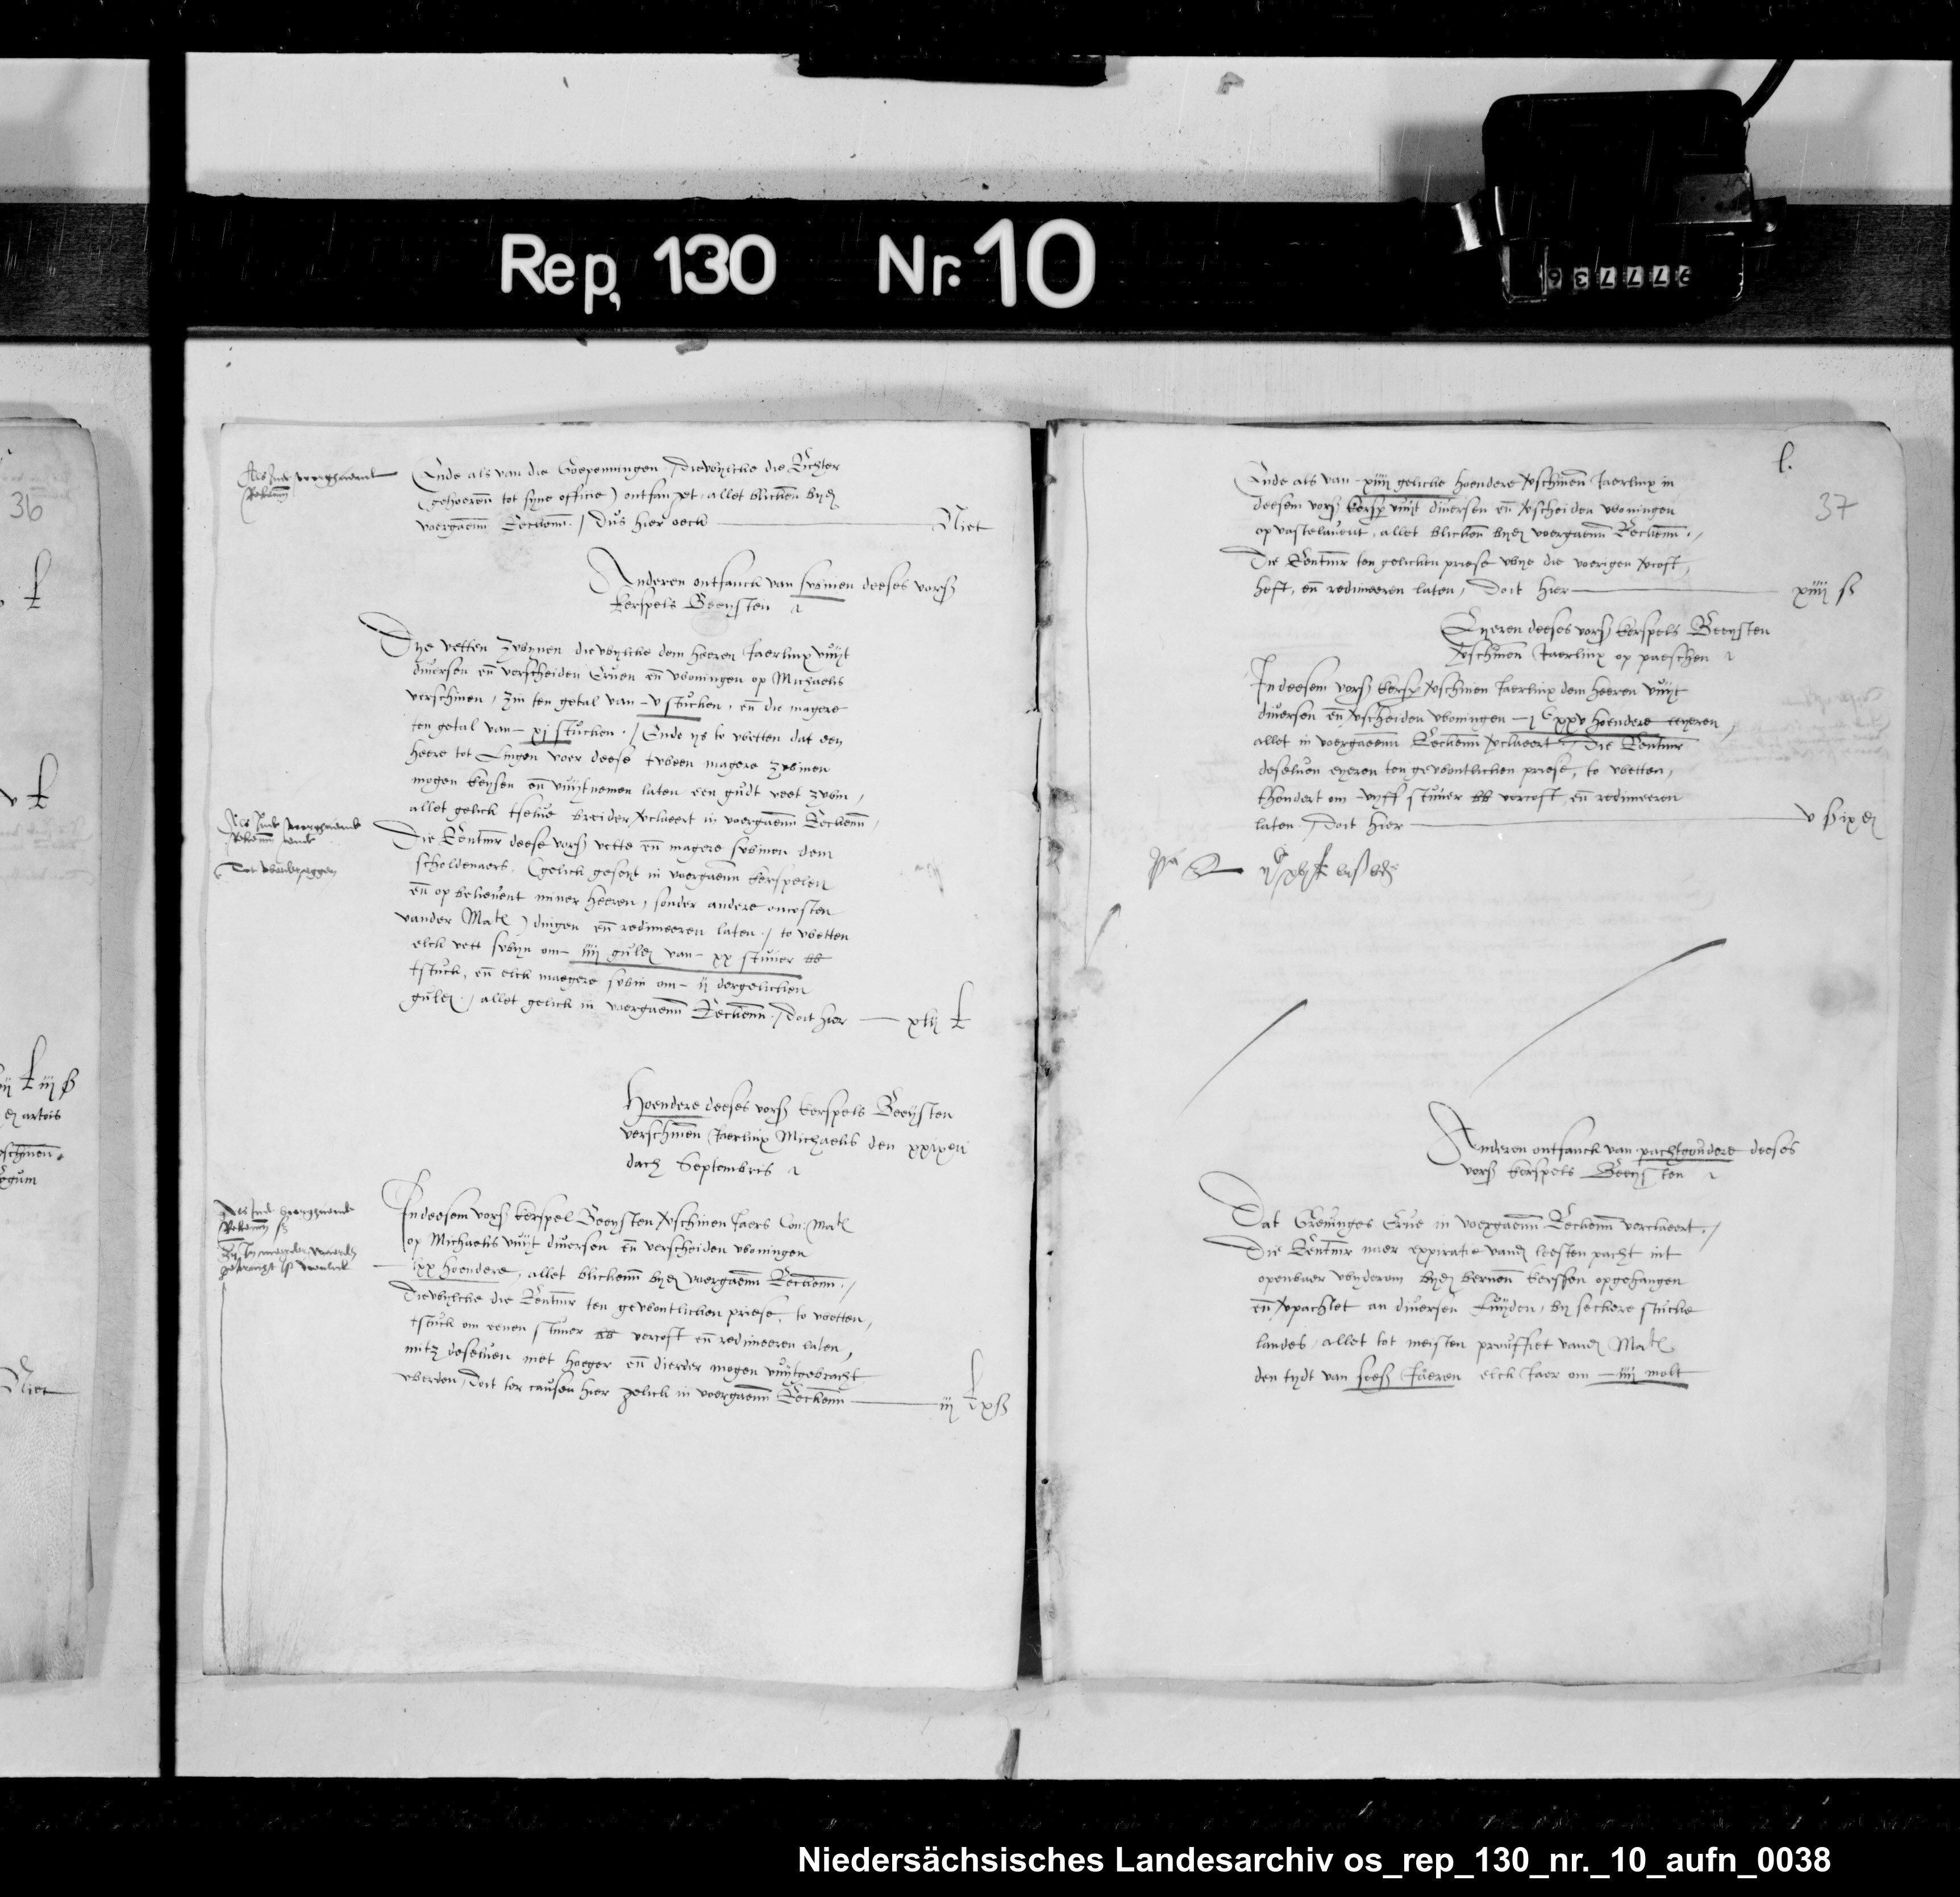 Rep, 130 Nr. 10
36
Niet
Als inde voorghaende
Rekenn
Ende als van die Goepenningen / diewylcke die Richter
(gehoerenn tot syne officie) ontfanget, allet blickenn byd
voergaenn Reckenn. / Dus hier oeck Niet
Anderen ontfanck van swinen deeses vors
kerspels Beeysten
Dye vetten zwynen diewylcke dem heeren Jaerlinx vuyt
diversen en verscheiden Erven en woningen op Michaelis
verschinen, zin ten getal van v stucken, en die magere
ten getal van xj stucken. / Ende ys to wetten dat een
heere tot Lingen voer deese tween magere zwinen
mogen keysen en vuytnemen laten een gudt veet zwin,
allet gelick tselve breider verclaert in voergaenn Reckenn,
Als inde voorghaende
Rekenn
Die Rentmr deese vors vette en magere swinen dem
scholdenaers, (gelick geseyt in voergaenn kerspelen
en op believent miner heeren, sonder andere oncosten
vander Mat) dingen en redimeeren laten. / to wetten
elck vett swyn om iiij gulden van xx stuver bb
tstuck, en elck maegere swin om ij dergelicken
gulden. / allet gelick in voergaenn Reckenn. / Doit hier xlij £
Hoendere deeses vors kerspels Beeysten
verschinen Jaerlinx Michaelis den xxixen
dach Septembris
Als inde voorghaende
Rekenn
In deesem vors kerspel Beeysten verschinen Jaers Con. Mat
op Michaelis vuyt diversen en verscheiden woningen
lxx hoendere, allet blickenn byd voergaenn Reckenn. /
Diewylcke die Rentmr ten gewontlicken priese, to wetten,
tstuck om eenen stuver bb vercoft en redimeeren laten,
mitz deselven niet hoeger en dierder mogen vuytgebracht
werden, Doit ter causen hier gelick in voergaenn Reckenn iij £ x ß
l.
37
Ende als van xiiij gelicke hoendere verschinen Jaerlinx in
deesem vors kersp vuyt diversen en verscheiden woningen
op vastelavent, allet blicken byd voergaenn Reckenn. /
Die Rentmr ten gelicken priese wye die voerigen vercoft,
heft, en redimeeren laten, Doit hier xiiij ß
Eyeren deeses vors kerspels Beeysten
verschinen Jaerlinx op paeschen
In deesem vors kersp verschinen Jaerlinx dem heeren vuyt
diversen en verscheiden woningen j C xxv hoendere eyeren,
allet in voergaenn Reckenn verclaert. / Die Rentmr
deselven eyeren ten gewontlicken priese, to wetten,
thondert om vyff stuver bb vercoft, en redimeeren
laten. / Doit hier v ß ix d
Anderen ontfanck van pachtgoudere deeses
vors kerspels Beeysten
Dat Greuinges Erve in voergaenn Reckenn verclaert. /
Die Rentmr naer expiratie vand leesten pacht int
openbaer wyderom byd bernen kerssen opgehangen
en verpachtet an diversen Luyden, by seckere stucke
landes, allet tot meisten prouffiet vand Mat
den tydt van sees Jaeren elck Jaer om iiij molt
Niedersächsisches Landesarchiv os_rep_130_nr._10_aufn_0038